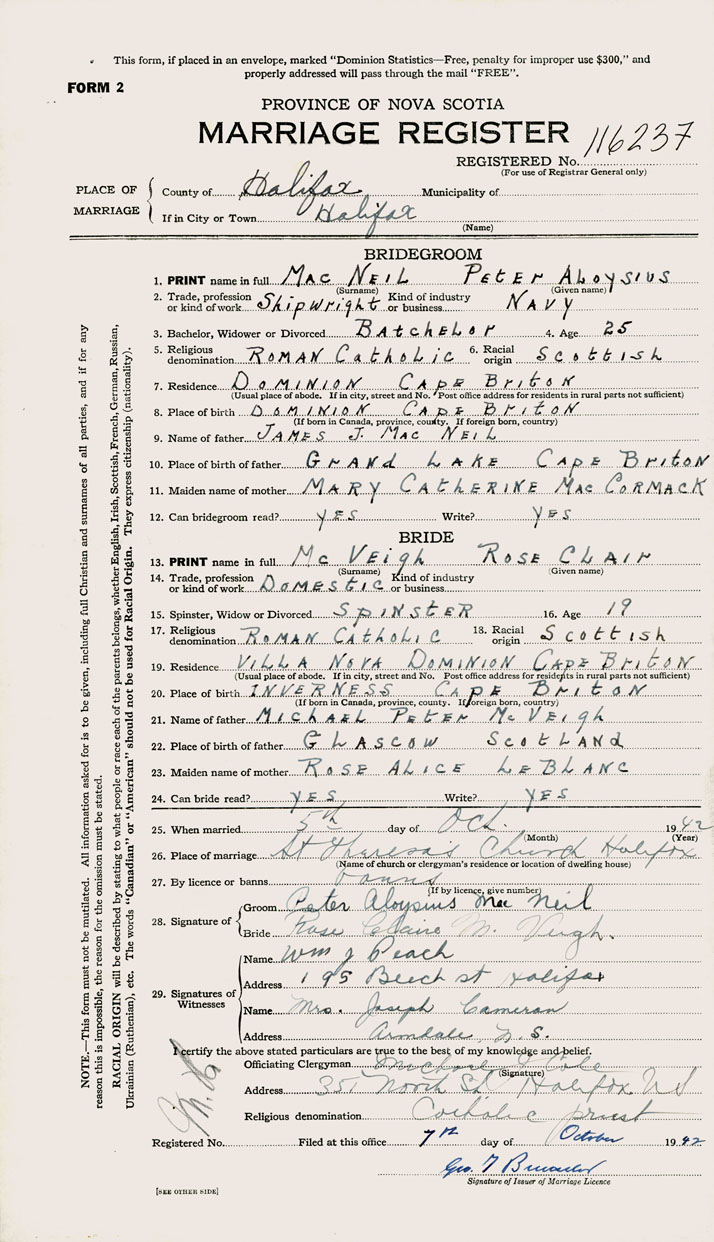 This form, if placed in an envelope, marked "Dominion Statistics—Free, penalty for improper use $300," and
properly addressed will pass through the mail "FREE".
FORM 2
PROVINCE OF NOVA SCOTIA
MARRIAGE REGISTER
116237
REGISTERED No.
(For use of Registrar General only)
PLACE OF MARRIAGE
County of Halifax Municipality of
If in City or Town Halifax
(Name)
BRIDEGROOM
1. PRINT name in full MAC NEIL PETER ALOYSIUS
(Surname) (Given name)
2. Trade, profession or kind of work Shipwright Kind of industry or business NAVY
3. Bachelor, Widower or Divorced BATCHELOR 4. Age 25
5. Religious denomination ROMAN CATHOLIC 6. Racial origin SCOTTISH
7. Residence DOMINION CAPE BRITON
(Usual place of abode. If in city, street and No. Post office address for residents in rural parts not sufficient)
8. Place of birth DOMINION CAPE BRITON
(If born in Canada, province, county. If foreign born, country)
9. Name of father JAMES J. MAC NEIL
10. Place of birth of father GRAND LAKE CAPE BRITON
11. Maiden name of mother MARY CATHERINE MAC CORMACK
12. Can bridegroom read? YES Write? YES
BRIDE
13. PRINT name in full MC VEIGH ROSE CLAIR
(Surname) (Given name)
14. Trade, profession or kind of work DOMESTIC Kind of industry or business
15. Spinster, Widow or Divorced SPINSTER 16. Age 19
17. Religious denomination ROMAN CATHOLIC 18. Racial origin SCOTTISH
19. Residence VILLA NOVA DOMINION CAPE BRITON
(Usual place of abode. If in city, street and No. Post office address for residents in rural parts not sufficient)
20. Place of birth INVERNESS CAPE BRITON
(If born in Canada, province, county. If foreign born, country)
21. Name of father MICHAEL PETER MC VEIGH
22. Place of birth of father GLASCOW SCOTLAND
23. Maiden name of mother ROSE ALICE LEBLANC
24. Can bride read? YES Write? YES
25. When married 5th day of Oct. 1942
(Month) (Year)
26. Place of marriage St Theresa's Church Halifax
(Name of church or clergyman's residence or location of dwelling house)
27. By licence or banns banns
(If by licence, give number)
28. Signature of
Groom Peter Aloysius Mac Neil
Bride Rose Claire Mc Veigh.
29. Signatures of Witnesses
Name Wm J Peach
Address 195 Beech st Halifax
Name Mrs. Joseph Cameron
Address Armdale, N.S.
I certify the above stated particulars are true to the best of my knowledge and belief.
Officiating Clergyman Michael Cole
(Signature)
Address 351 North St Halifax NS
Religious denomination Catholic priest
Registered No. Filed at this office 7th day of October 1942
Geo. T
Signature of Issuer of Marriage Licence
[SEE OTHER SIDE]
NOTE.—This form must not be mutilated. All information asked for is to be given, including full Christian and surnames of all parties, and if for any
reason this is impossible, the reason for the omission must be stated.
RACIAL ORIGIN will be described by stating to what people or race each of the parents belongs, whether English, Irish, Scottish, French, German, Russian,
Ukrainian (Ruthenian), etc. The words "Canadian" or "American" should not be used for Racial Origin. They express citizenship (nationality).